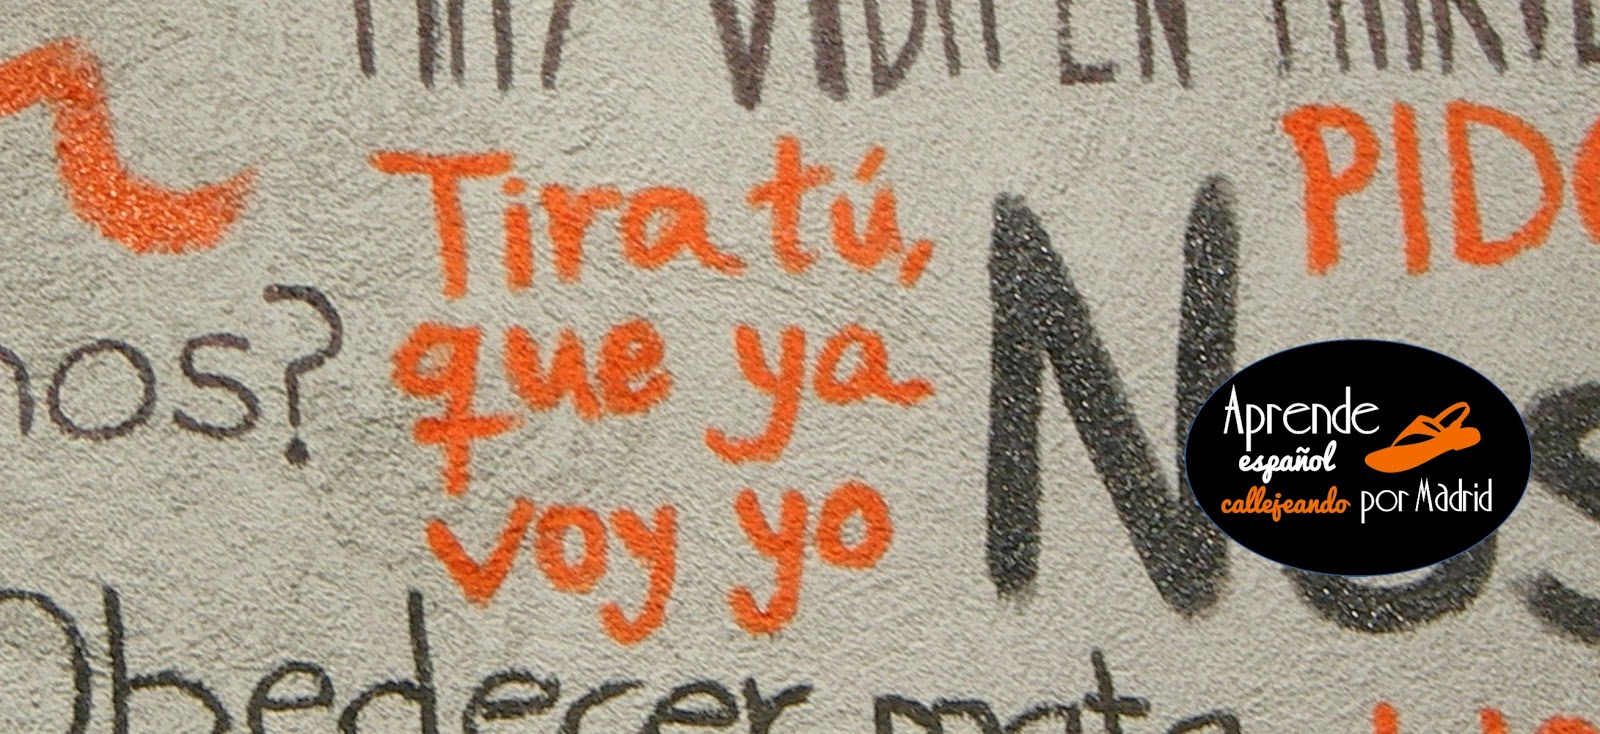 HAY VIDA EN MARTE
PIDO
Tira tú,
que ya
voy yo
nos?
Nos
Aprende
español
callejeando por Madrid
Obedecer mata